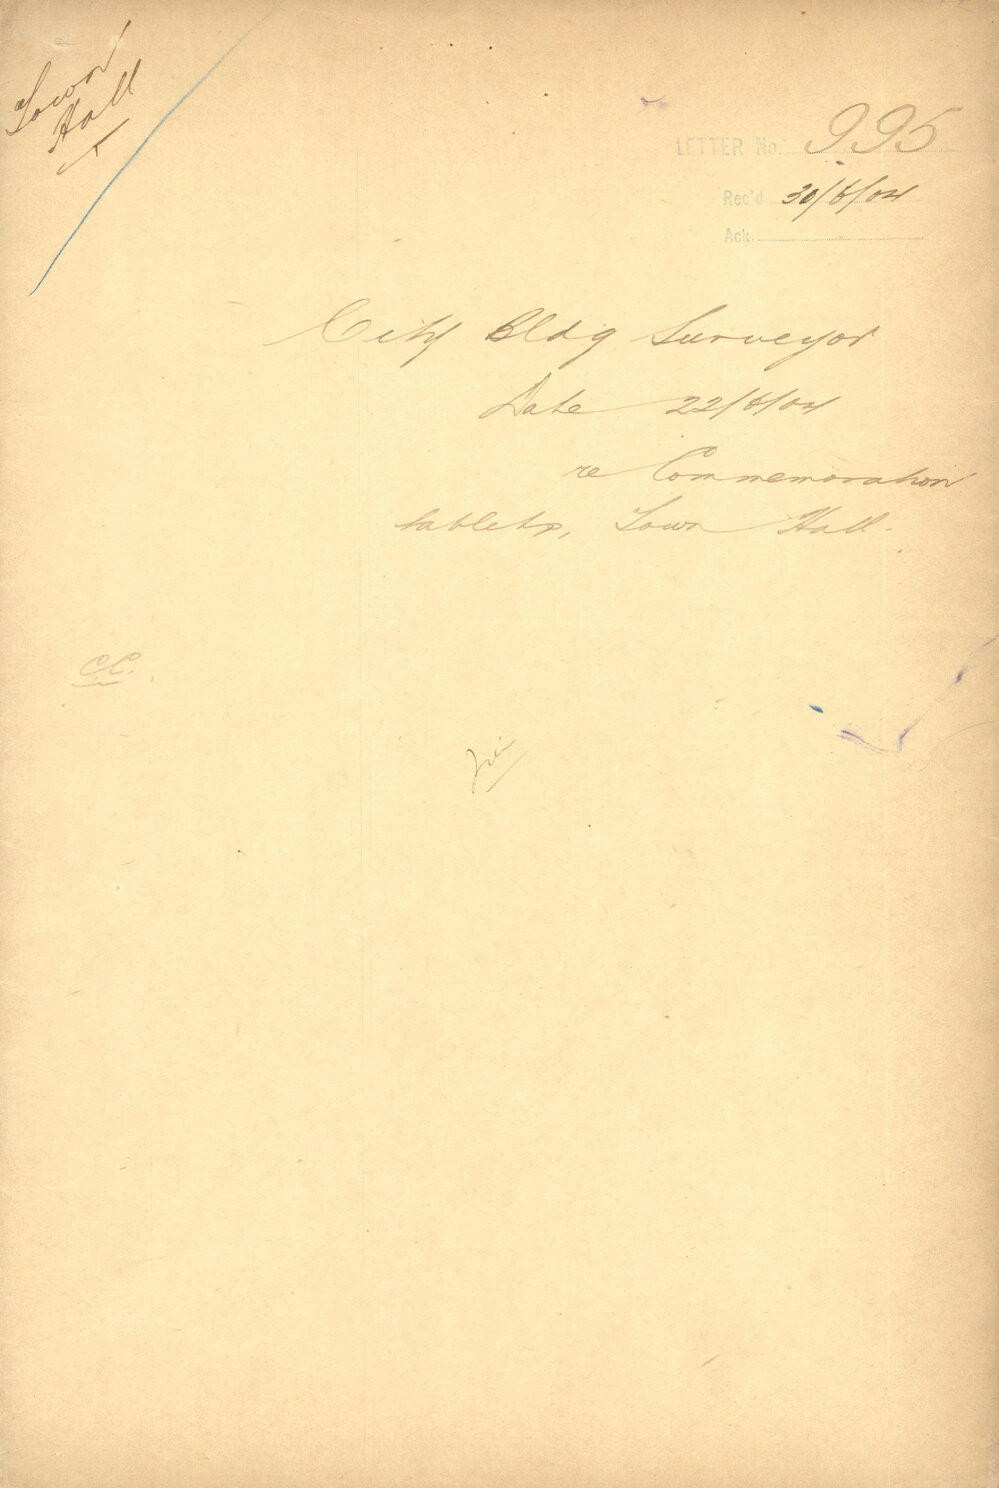 Town
Hall
LETTER No. 995
Rec'd 30/6/04
Ack.
City Bldg Surveyor
Date 22/6/04
re Commemoration
tablets, Town Hall.
C.C.